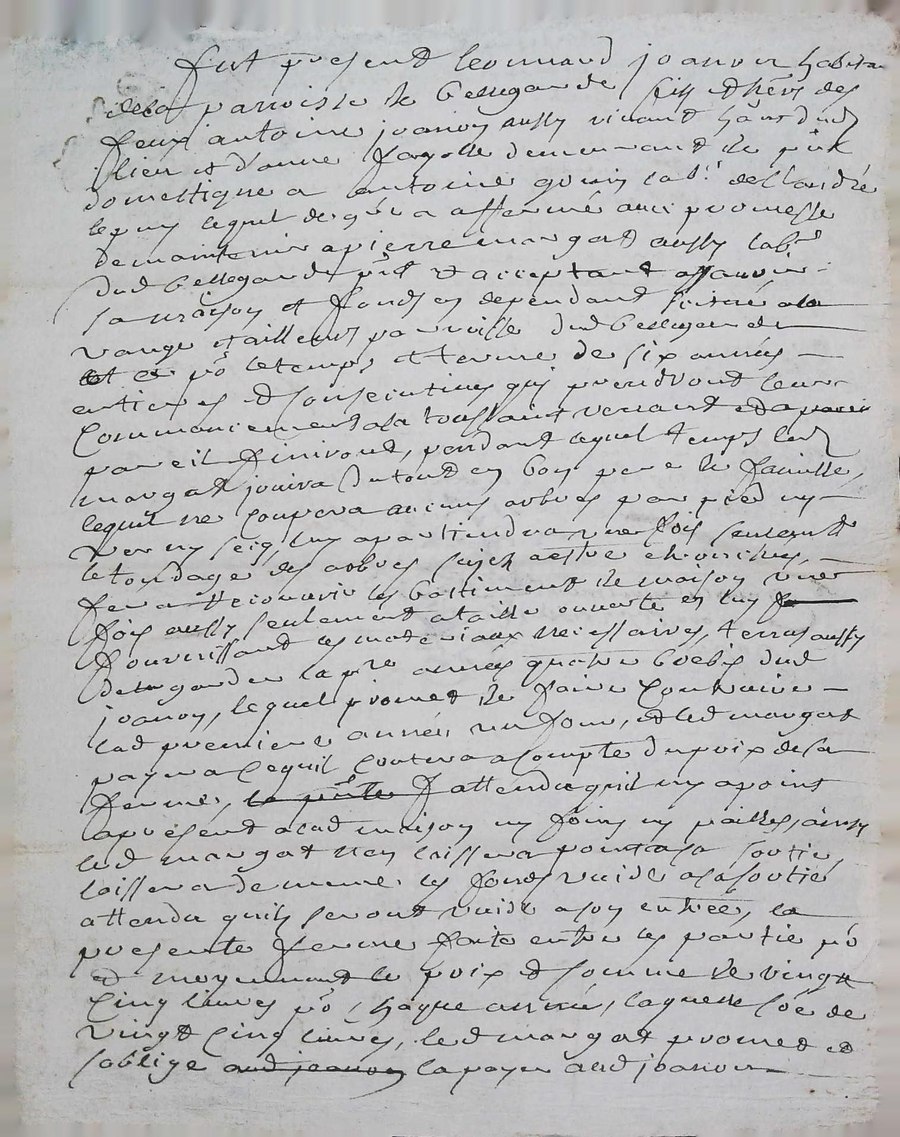 fut present leonnard joanon habitan
de la parroisse de bellegarde fils et her des
feux antoine joanon aussy vivant hant dud
lieu et d'anne fayolle demeurant de pnt
domestique a antoine labr
lequel de gré a affermé avec promesse
de maintenir a pierre margat aussy labr
dud bellegarde pnt et acceptant assavoir
sa maison et fonds en dependant scitué a la
vange et ailleurs parroisse dud bellegarde
po le temps et terme de six années
entieres et consecutives qui prendront leur
commancement a la toussaint venant
pareil finiront, pendant lequel temps led
margat jouira du tout en bon pere de famille,
lequel ne coupera aucuns arbres par pied ny
ny appartiendra une fois seulemt
le tondage des arbres sujets a estre
fera recouvrir les bastiments de maison une
fois aussy seulement a taille ouverte en luy
fournissant les materiaux necessaires, aussy
de garder la pre année quatre brebis dud
joanon, lequel promet de faire construire
lad premiere année un four, et led margat
payera ce quil coutera a compte du prix de la
ferme, attendu quil ny a point
a present a lad maison ny foins ny pailles, ainsy
led margat nen laissera point a sa sortie,
laissera de meme les fonds vuide a sa sortie
attendu quils seront vuide a son entrée, la
presente ferme faite entre les partie po
et moyennant le prix et somme de vingt
cinq livres po chaque année, laquelle soe de
vingt cinq livres, led margat promet et
soblige aud joanon la payer aud joanon